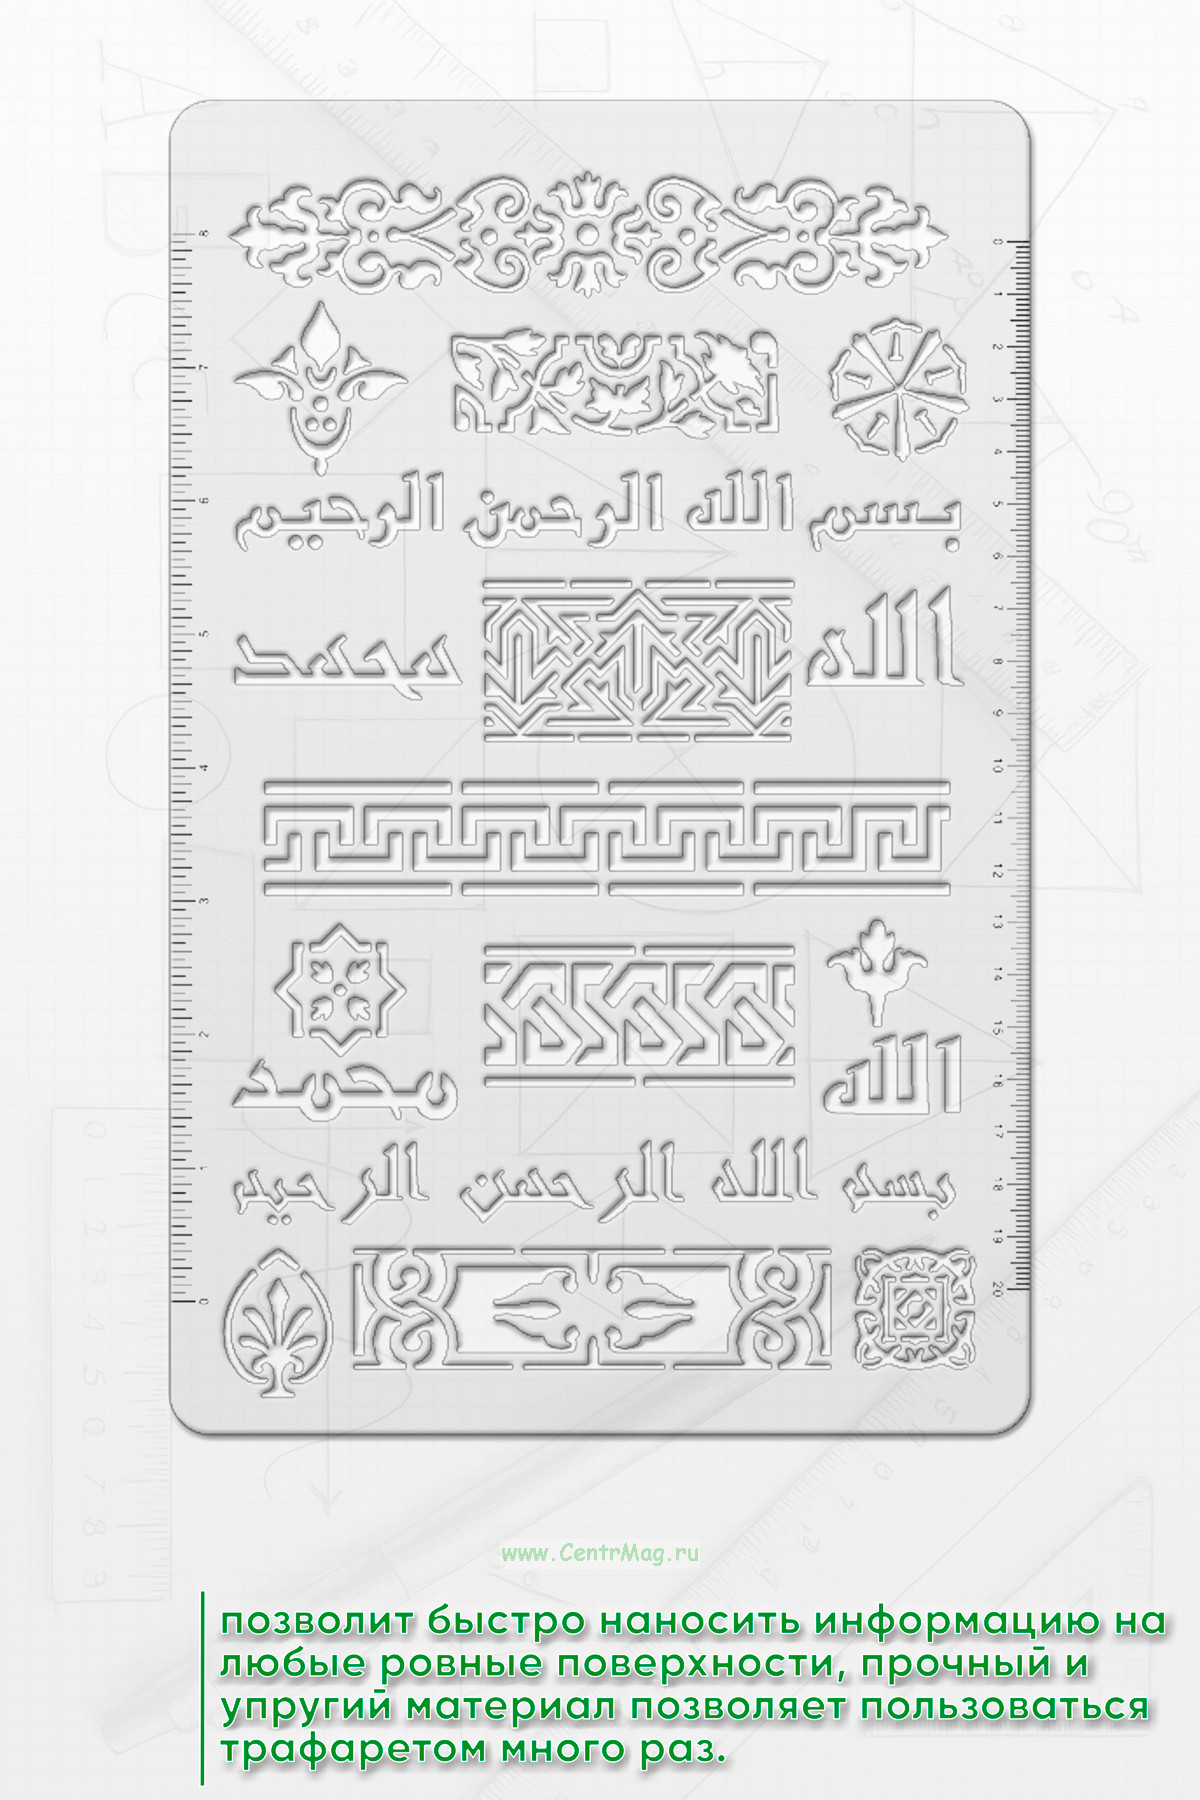 بسم الله الرحمن الرحيم
الله
محمد
الله
محمد
بسم الله الرحمن الرحيم
8 7 6 5 4 3 2 1 0
0 1 2 3 4 5 6 7 8 9 10 11 12 13 14 15 16 17 18 19 20
www.CentrMag.ru
позволит быстро наносить информацию на
любые ровные поверхности, прочный и
упругий материал позволяет пользоваться
трафаретом много раз.